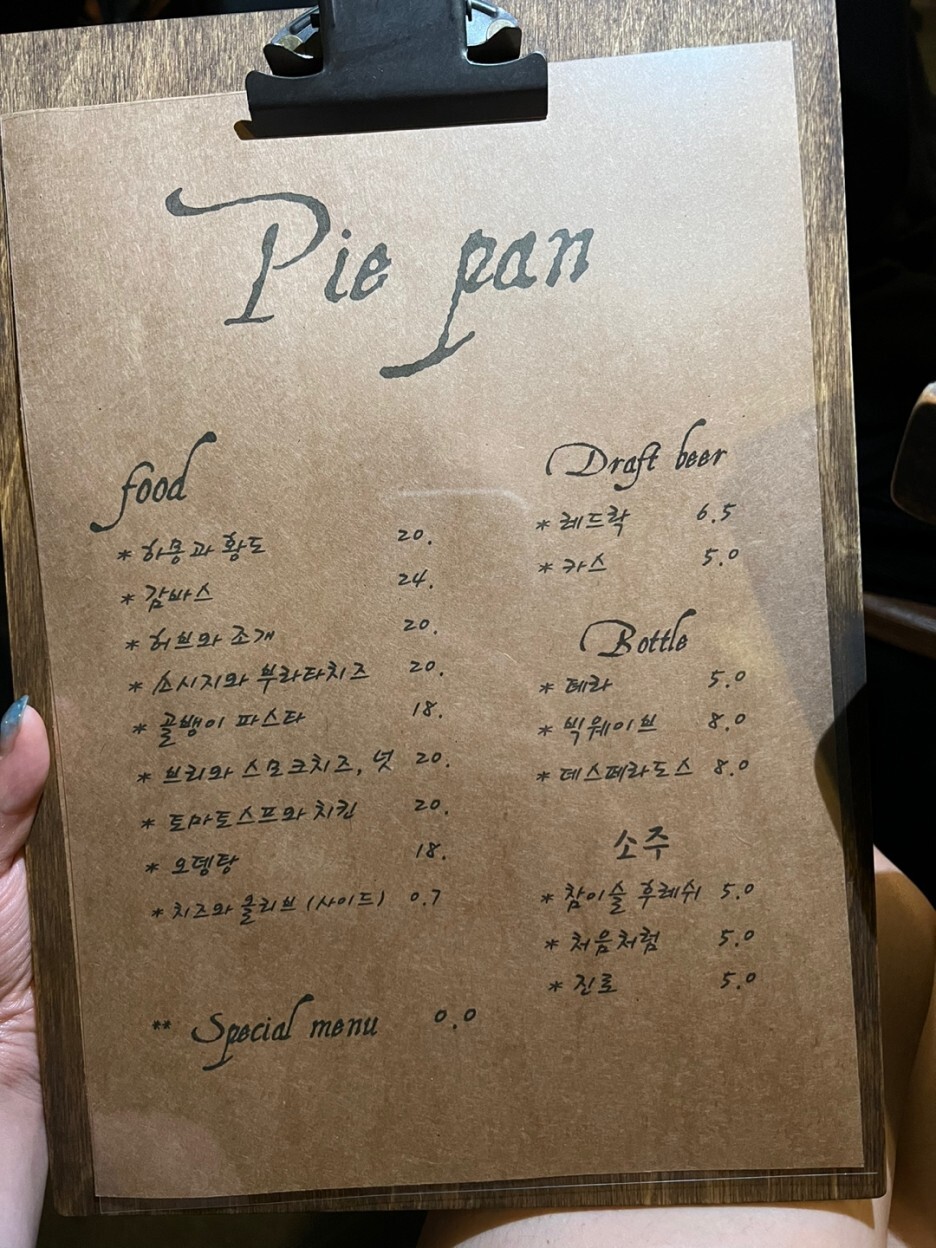 Pie pan
food
* 하몽과 황도 20.
* 감바스 24.
* 허브와 조개 20.
* 소시지와 부라타치즈 20.
* 골뱅이 파스타 18.
* 브리와 스모크치즈, 넛 20.
* 토마토스프와 치킨 20.
* 오뎅탕 18.
* 치즈와 올리브 (사이드) 0.7
** Special menu 0.0
Draft beer
* 레드락 6.5
* 카스 5.0
Bottle
* 테라 5.0
* 빅웨이브 8.0
* 데스페라도스 8.0
소주
* 참이슬 후레쉬 5.0
* 처음처럼 5.0
* 진로 5.0